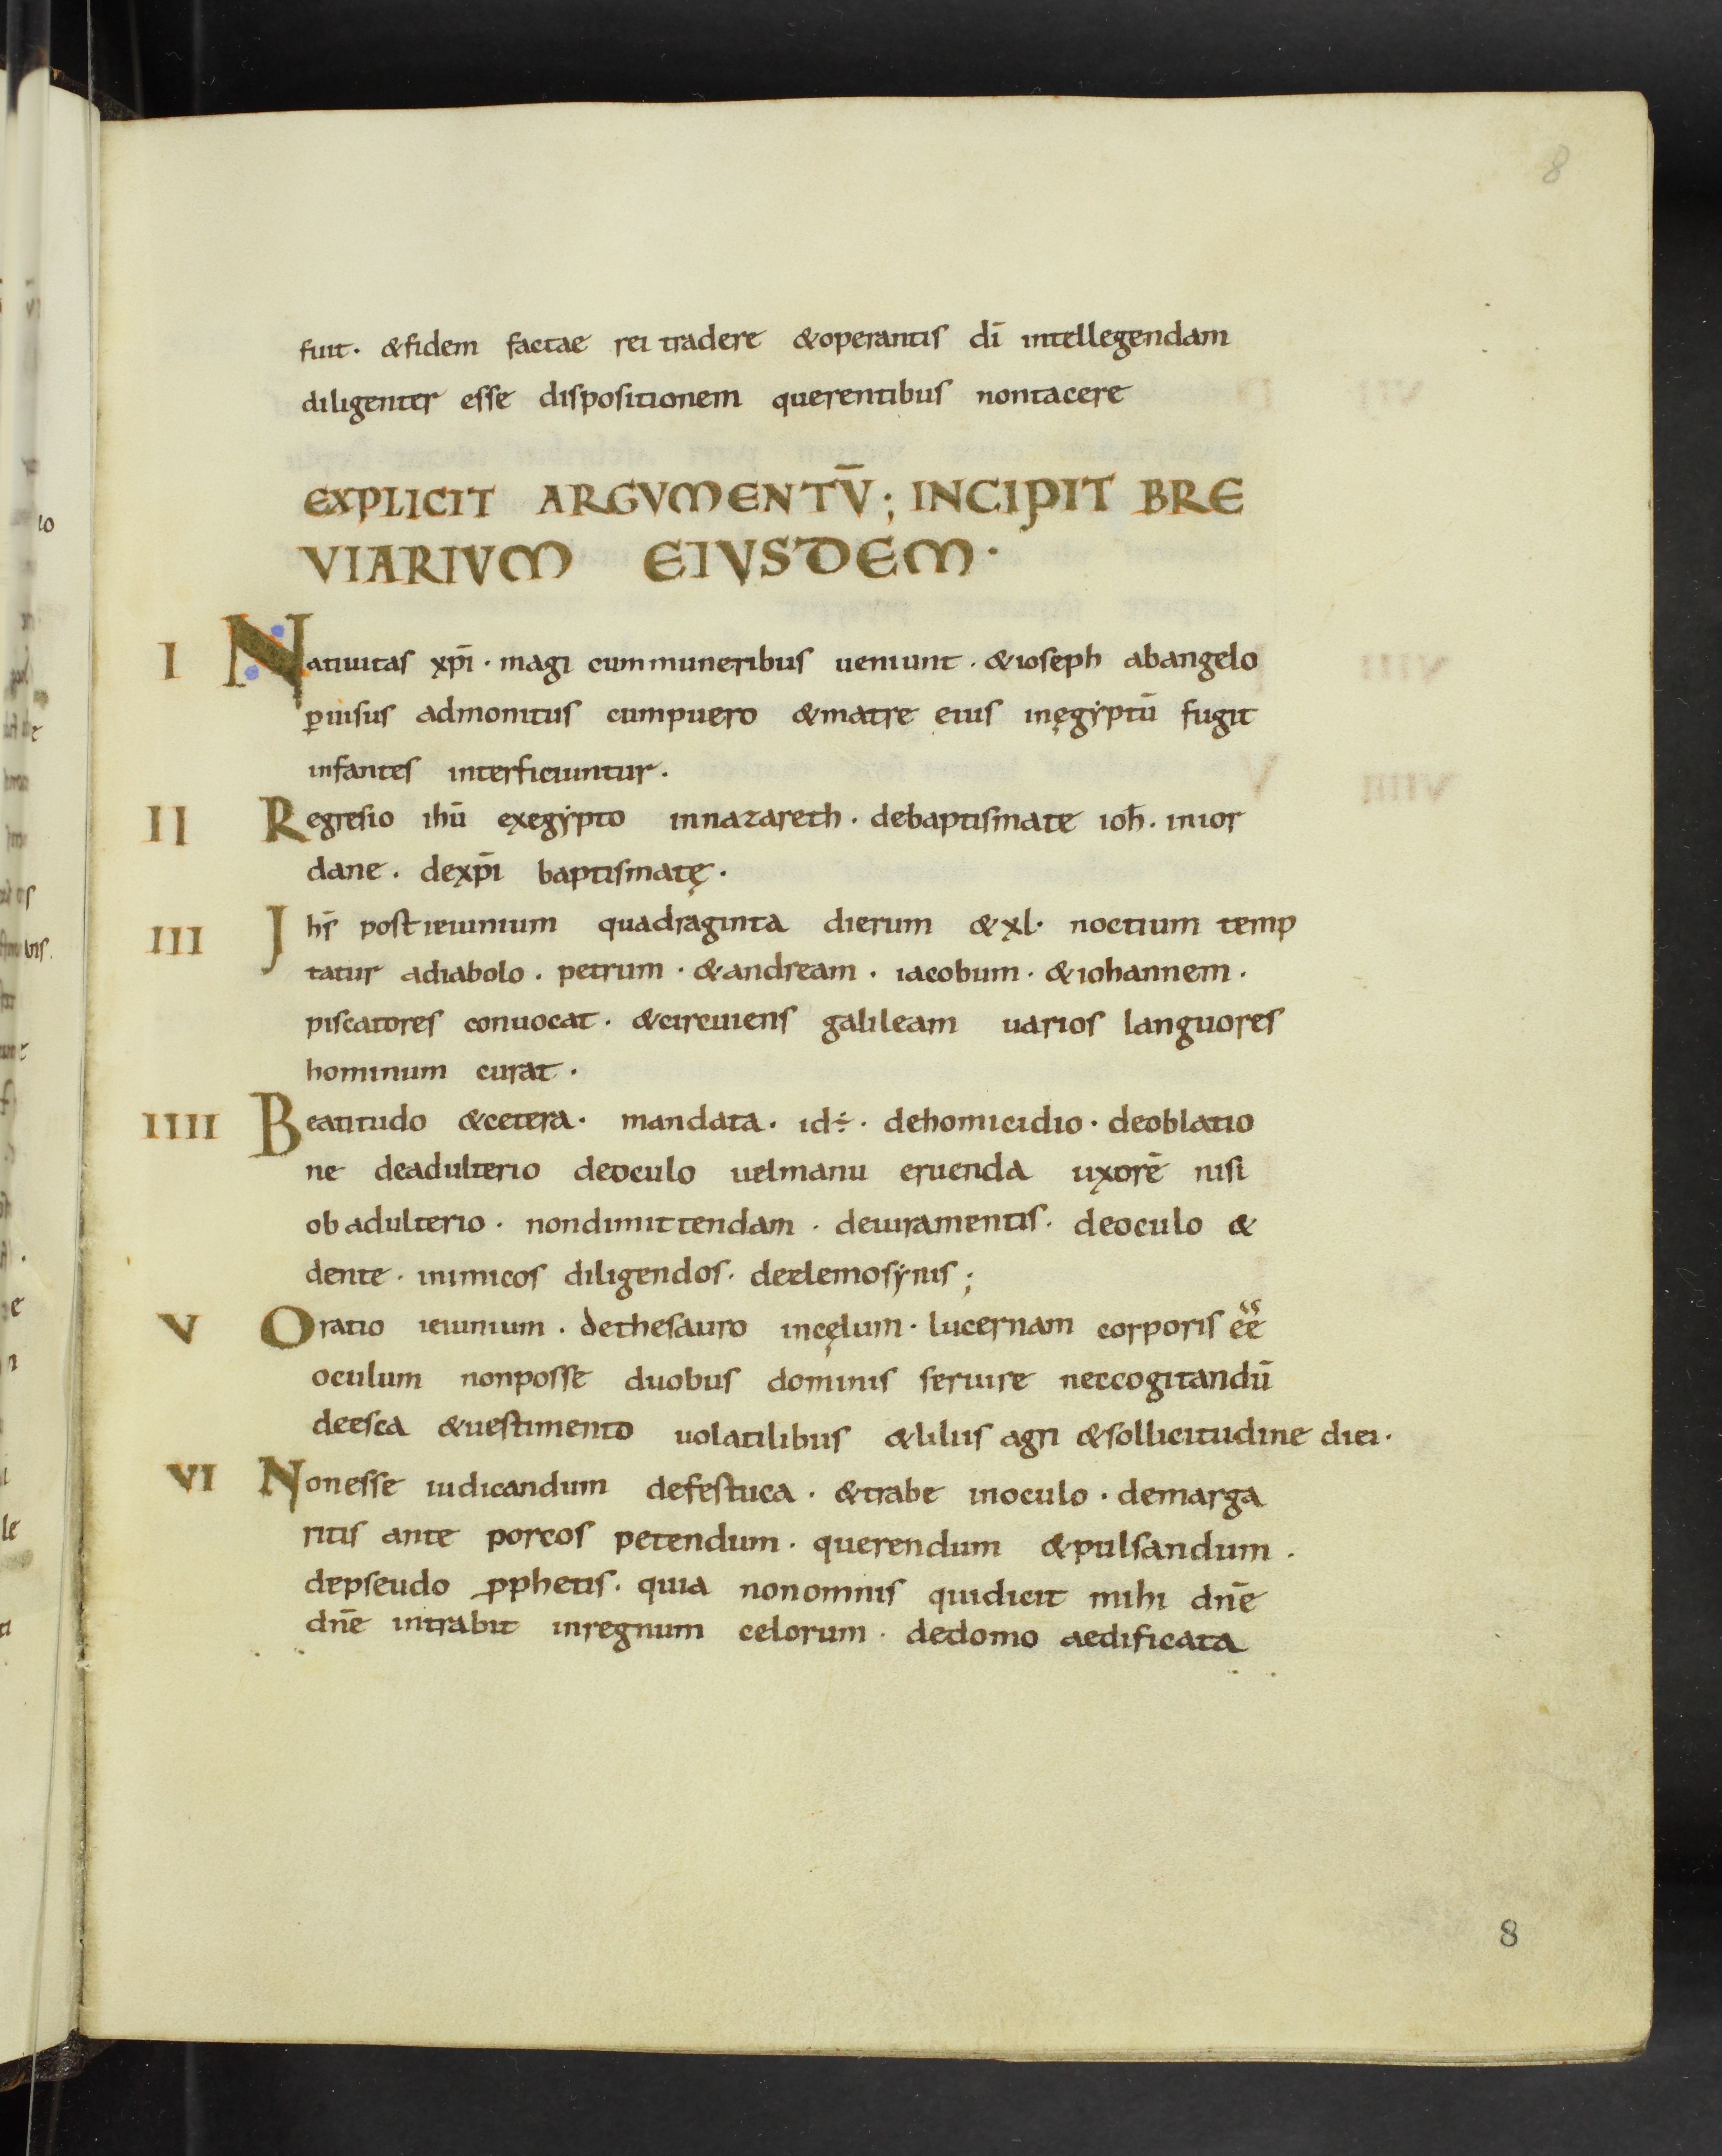 8
fuit · & fidem factae rei tradere & operantis dī intellegendam
diligenter esse dispositionem querentibus non tacere
EXPLICIT ARGVMENTV̄; INCIPIT BRE
VIARIVM EIVSDEM ·
I Natiuitas xpī · magi cum muneribus ueniunt · & ioseph ab angelo
ꝑ uisus admonitus cum puero & matre eius in ęgẏptū fugit
infantes interficiuntur ·
II Regresio ihū ex egẏpto in nazareth · de baptismate ioh̄ · in ior
dane · de xpī baptismatę ·
III Ihs̄ post ieiunium quadraginta dierum & xl · noctium temp
tatur a diabolo · petrum · & andream · iacobum · & iohannem ·
piscatores conuocat · & circuiens galileam uarios languores
hominum curat ·
IIII Beatitudo & cetera · mandata · id ÷ · de homicidio · de oblatio
ne de adulterio de oculo uel manu eruenda uxorē nisi
ob adulterio · non dimittendam · de iuramentis · de oculo &
dente · inimicos diligendos · de elemosẏnis ;
V Oratio ieiunium · de thesauro in cęlum · lucernam corporis ee͛e͛
oculum non posse duobus dominis seruire nec cogitandū
de esca & uestimento uolatilibus & liliis agri & sollicitudine diei ·
VI Non esse iudicandum de festuca · & trabe in oculo · de marga
ritis ante porcos petendum · querendum & pulsandum ·
de pseudo ꝓphetis · quia non omnis qui dicit mihi dn̄e
dn̄e intrabit in regnum celorum · de domo aedificata
8